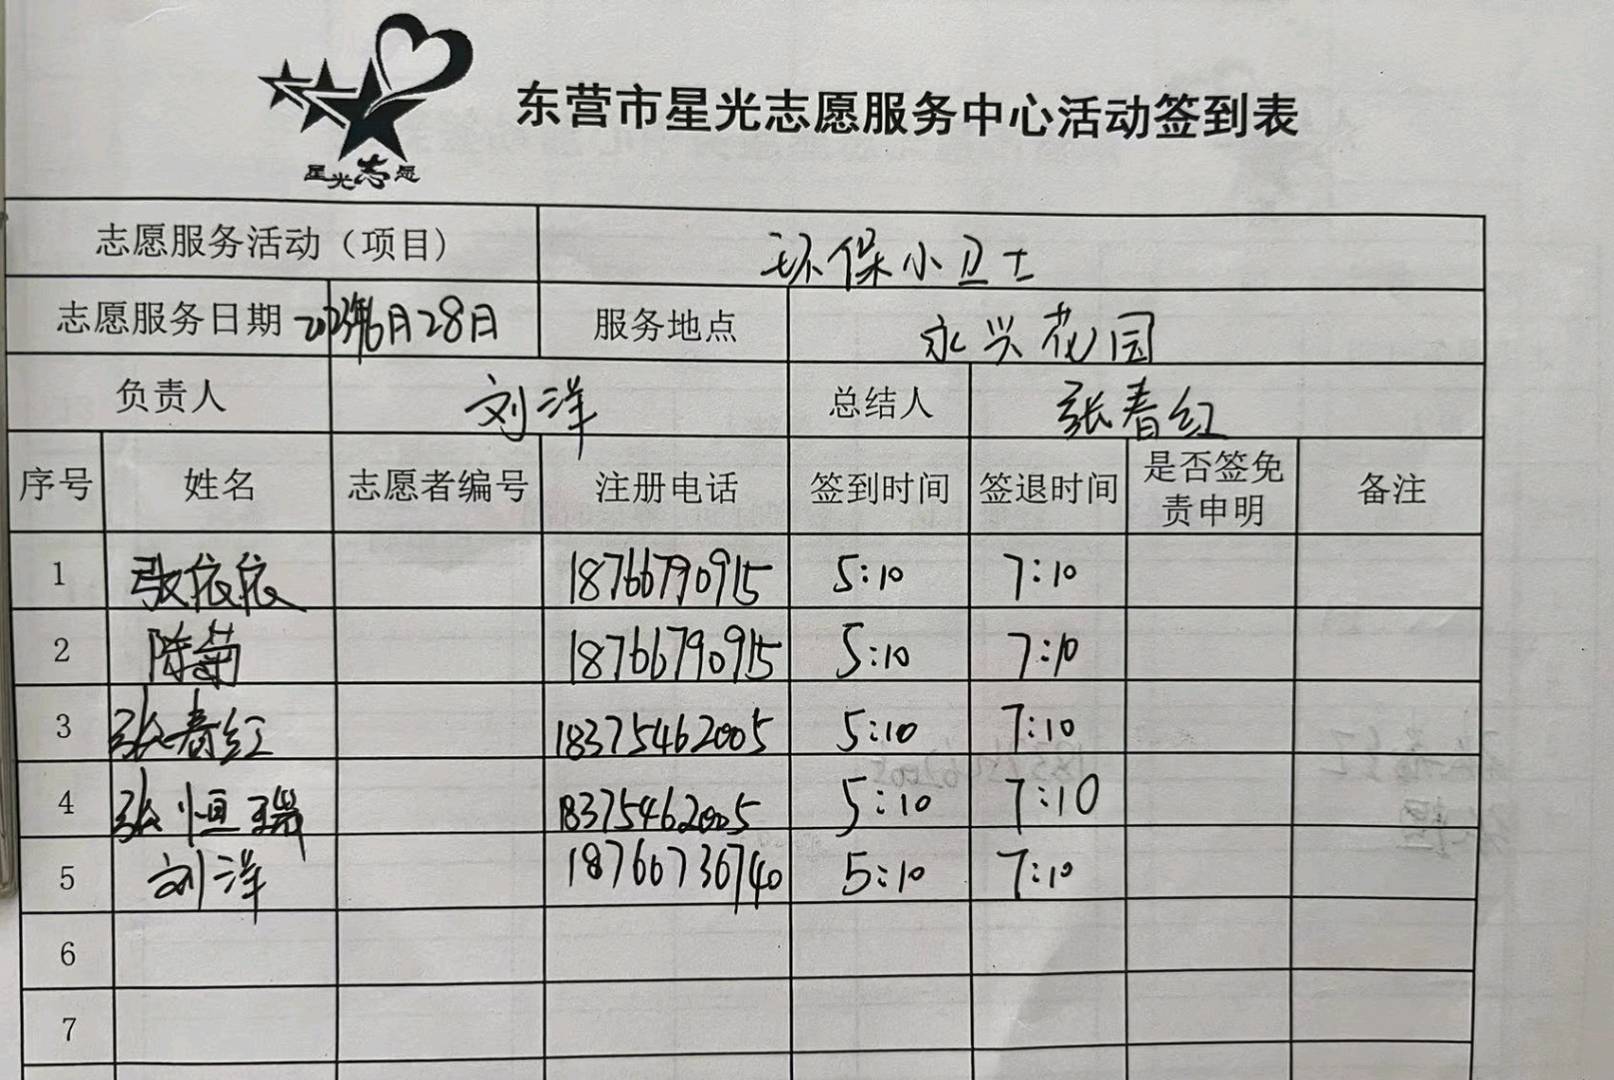 星光志愿
东营市星光志愿服务中心活动签到表
志愿服务活动（项目） 环保小卫士
志愿服务日期 2023年6月28日 服务地点 永兴花园
负责人 刘洋 总结人 张春红
序号 姓名 志愿者编号 注册电话 签到时间 签退时间 是否签免责申明 备注
1 张依依 18766790915 5:10 7:10
2 陈菊 18766790915 5:10 7:10
3 张春红 18375462005 5:10 7:10
4 张恒瑞 18375462005 5:10 7:10
5 刘洋 18766736740 5:10 7:10
6
7